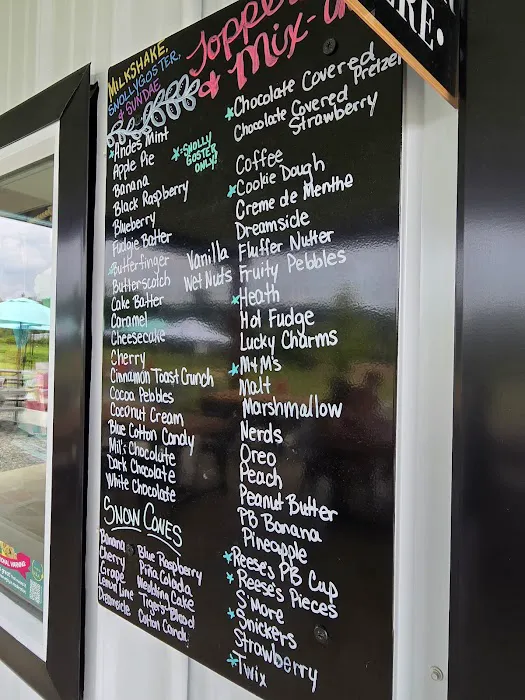 MILKSHAKE,
SNOLLYGOSTER,
& SUNDAE
Toppe
& Mix-
*Andes Mint
*=SNOLLY
GOSTER
ONLY!
Apple Pie
Banana
Black Raspberry
Blueberry
Fudgie Batter
*Butterfinger
Butterscotch
Cake Batter
Caramel
Cheesecake
Cherry
Cinnamon Toast Crunch
Cocoa Pebbles
Coconut Cream
Blue Cotton Candy
Milk Chocolate
Dark Chocolate
White Chocolate
Vanilla
Wet Nuts
*Chocolate Covered
Pretzel
Chocolate Covered
Strawberry
Coffee
*Cookie Dough
Creme de Menthe
Dreamside
Fluffer Nutter
Fruity Pebbles
*Heath
Hot Fudge
Lucky Charms
*M&M's
Malt
Marshmallow
Nerds
Oreo
Peach
Peanut Butter
PB Banana
Pineapple
*Reese's PB Cup
*Reese's Pieces
S'more
*Snickers
Strawberry
*Twix
SNOW CONES
Banana
Cherry
Grape
Lemon Lime
Dreamsicle
Blue Raspberry
Piña Colada
Wedding Cake
Tiger's Blood
Cotton Candy
RE.